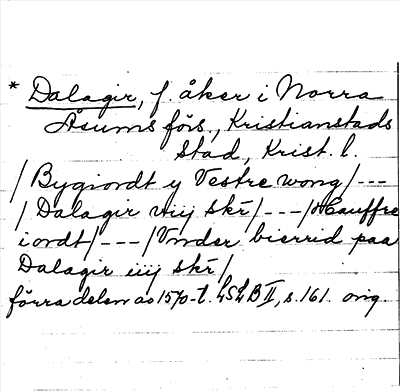 * Dalagir, f. åker i Norra
Åsums förs., Kristianstads
stad, Krist. l.
/ Bygiordt y Vestre wong / ---
/ Dalagir viij skr / --- / Hauffre
iordt / --- / Vnder bierrid paa
Dalagir iiij skr /
förra delen av 1570-t. LSLB II, s. 161. orig.